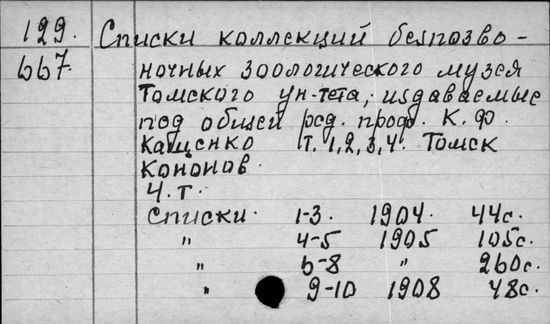 129. Списки коллекций безпозво-
667. ночных зоологического музея
Томского ун-тета, издаваемые
под общей ред. проф. К. Ф.
Кащенко Т. 1, 2, 3, 4. Томск
Кононов.
4. т.
Списки. 1-3. 1904. 44с.
" 4-5 1905 105с.
" 6-8 " 260с.
" 9-10 1908 48с.